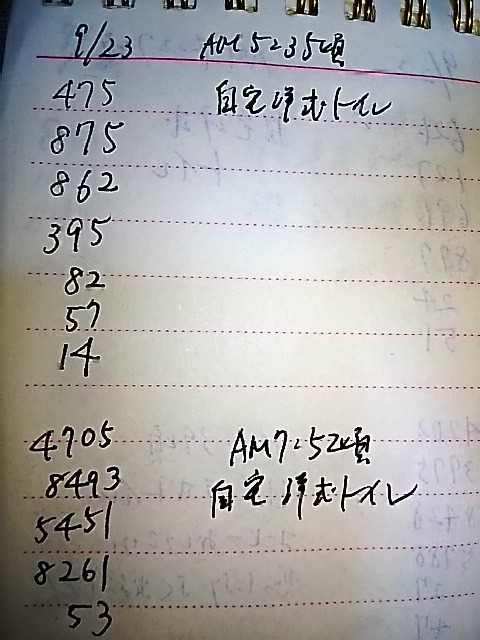 9/23 AM5:35頃
475 自宅洋式トイレ
875
862
395
82
57
14
4705 AM7:52頃
8493 自宅洋式トイレ
5451
8261
53